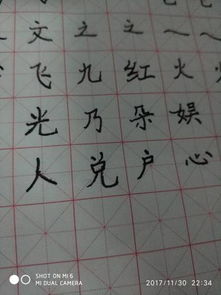 文之之
飞九红火
光乃朵娱
人兑户心
SHOT ON MI 6
MI DUAL CAMERA
2017/11/30 22:34